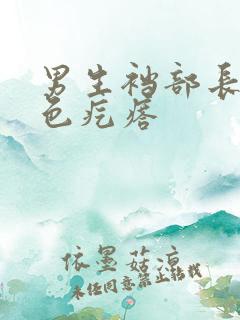 男生裆部长
色疙瘩
依墨菇凉
未经同意禁止转载